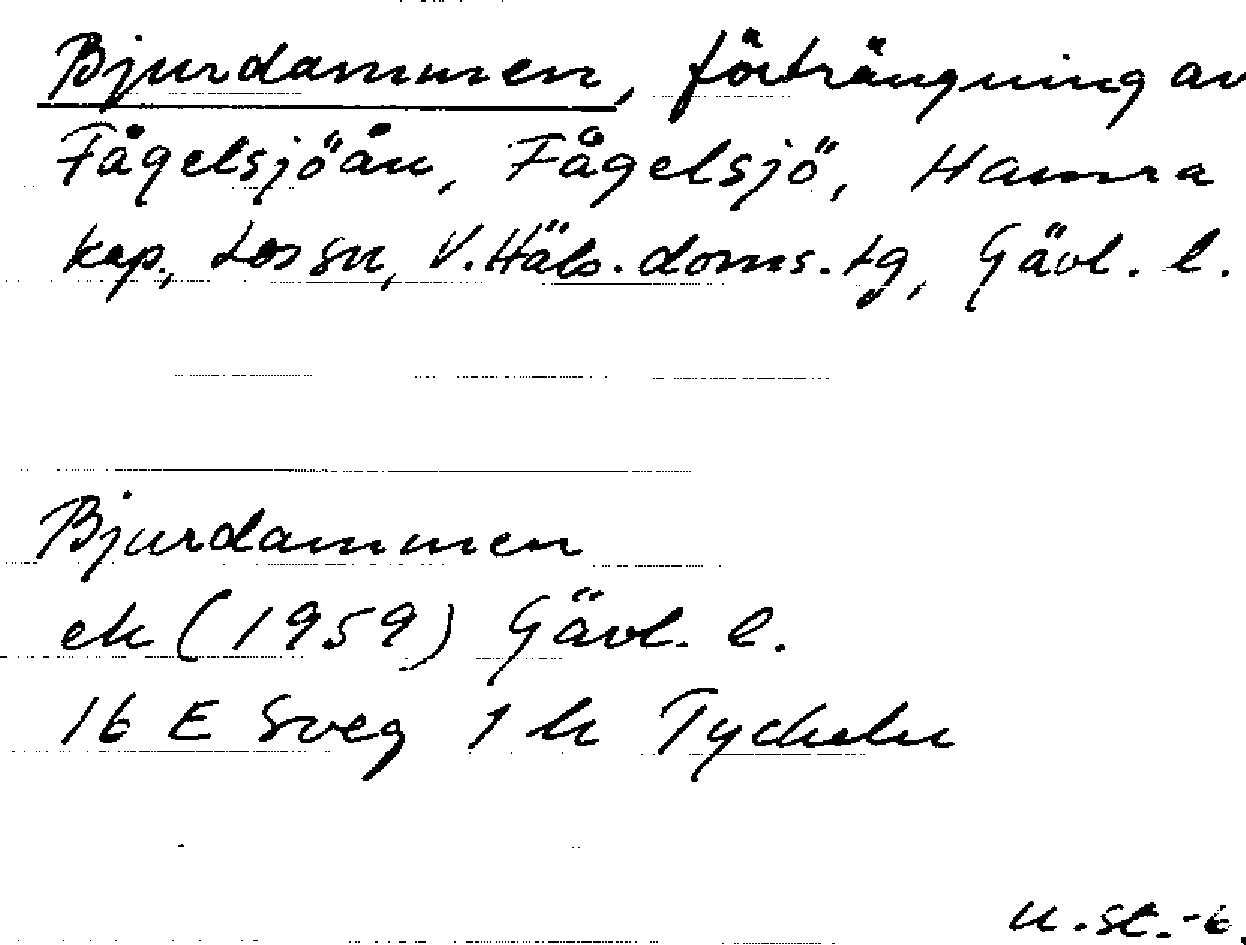 Bjurdammen, förträngning av
Fågelsjöån, Fågelsjö, Hamra
kap., Los sn, V. Häls. doms. tg, Gävl. l.
Bjurdammen
ek (1959) Gävl. l.
16 E Sveg 1 h
u. st.